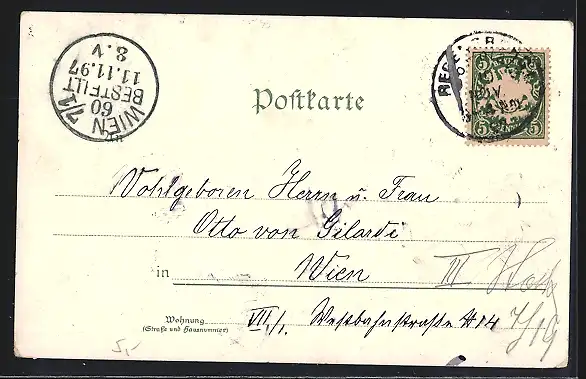 WIEN 7/1
60
BESTELLT
11.11.97
8.V
Postkarte
BAYERN
5 5
5 PFENNIG 5
Wohlgeboren Herrn u. Frau
Otto von Gilardi
in Wien III
Wohnung
(Straße und Hausnummer)
VII/1. Westbahnstraße # 14
7/19
5,-